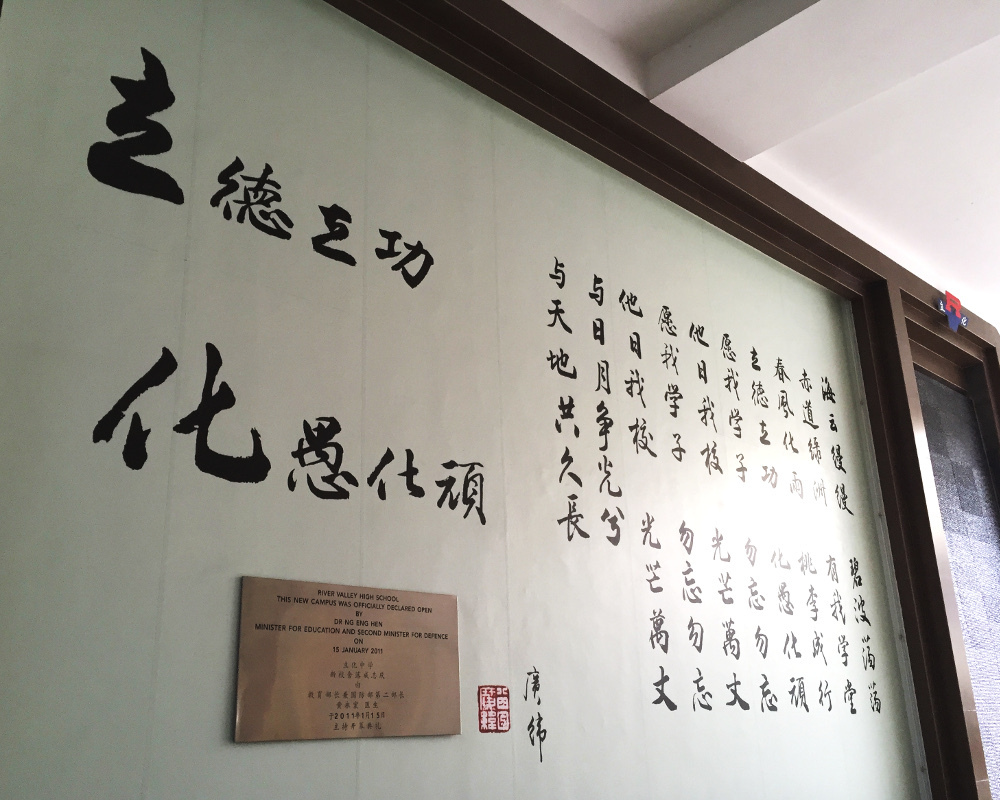 立德立功
化愚化頑
海云缦缦 碧波荡荡
赤道绿洲 有我学堂
春風化雨 桃李成行
立德立功 化愚化頑
愿我学子 勿忘勿忘
他日我校 光芒萬丈
愿我学子 勿忘勿忘
他日我校 光芒萬丈
与日月争光兮
与天地共久長
廣纬
RIVER VALLEY HIGH SCHOOL
THIS NEW CAMPUS WAS OFFICIALLY DECLARED OPEN
BY
DR NG ENG HEN
MINISTER FOR EDUCATION AND SECOND MINISTER FOR DEFENCE
ON
15 JANUARY 2011
立化中学
新校舍落成志庆
由
教育部长兼国防部第二部长
黄永宏 医生
于2011年1月15日
主持开幕典礼
立 化